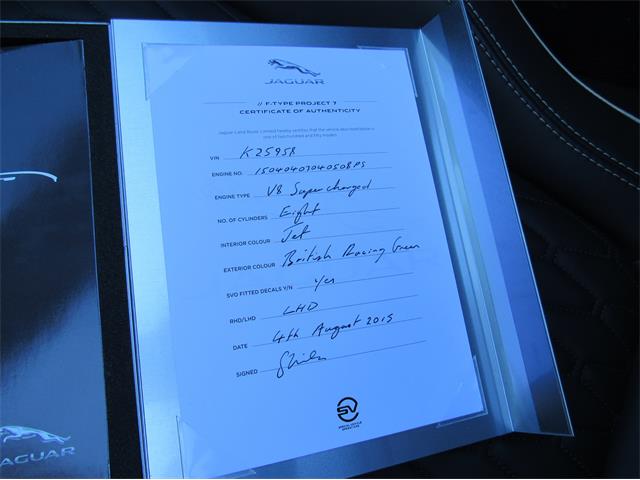 JAGUAR
// F-TYPE PROJECT 7
CERTIFICATE OF AUTHENTICITY
Jaguar Land Rover Limited hereby certifies that the vehicle described below is
one of two hundred and fifty models
VIN K25958
ENGINE NO. 15040407040508PS
ENGINE TYPE V8 Supercharged
NO. OF CYLINDERS Eight
INTERIOR COLOUR Jet
EXTERIOR COLOUR British Racing Green
SVO FITTED DECALS Y/N Yes
RHD/LHD LHD
DATE 4th August 2015
SIGNED
SV
SPECIAL VEHICLE
OPERATIONS
JAGUAR